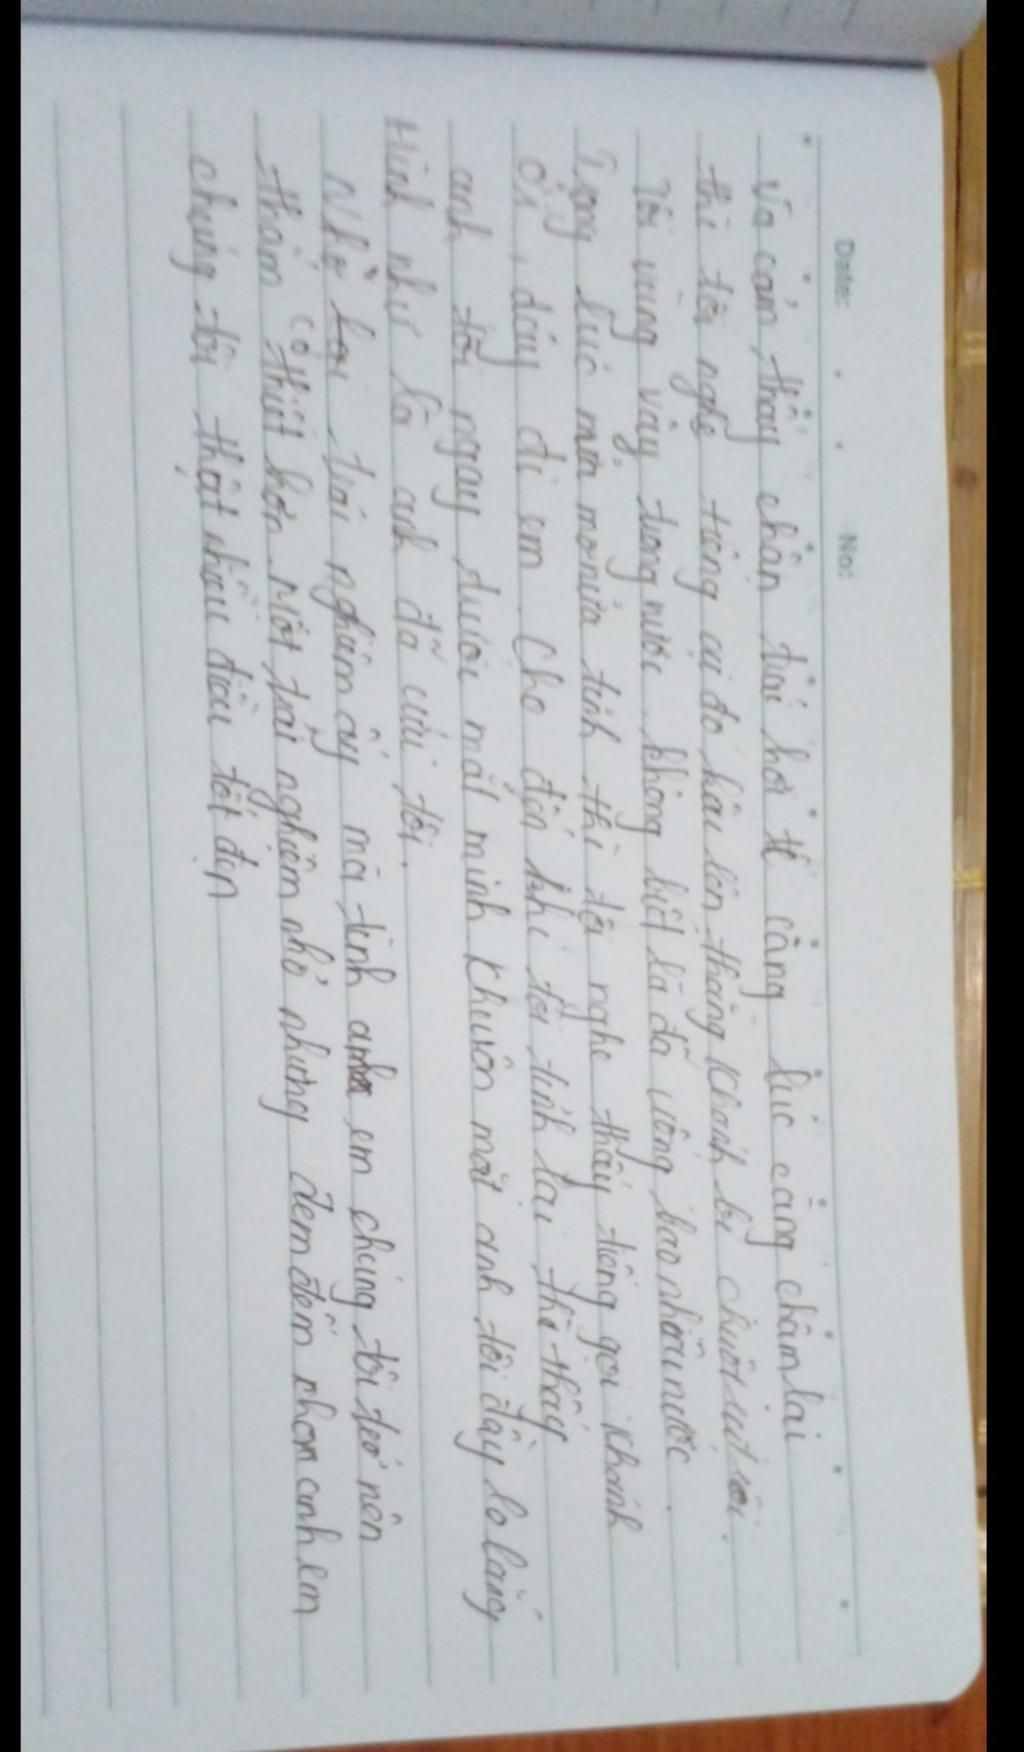 Date: No:
Và cảm thấy chân trái hơi tê càng lúc càng chậm lại
thì tôi nghe tiếng ai đó kêu lên thằng Khánh bị chuột rút rồi.
Tôi vùng vẫy trong nước không biết là đã uống bao nhiêu nước.
Trong lúc nửa mơ nửa tỉnh thì tôi nghe thấy tiếng gọi Khánh
ơi, dậy đi em. Cho đến khi tôi tỉnh lại thì thấy
anh tôi ngay trước mặt mình khuôn mặt anh tôi đầy lo lắng
Hình như là anh đã cứu tôi.
Nhờ trải nghiệm ấy mà tình anh em chúng tôi trở nên
thắm thiết hơn. Một trải nghiệm nhỏ nhưng đem đến cho anh em
chúng tôi thật nhiều điều tốt đẹp